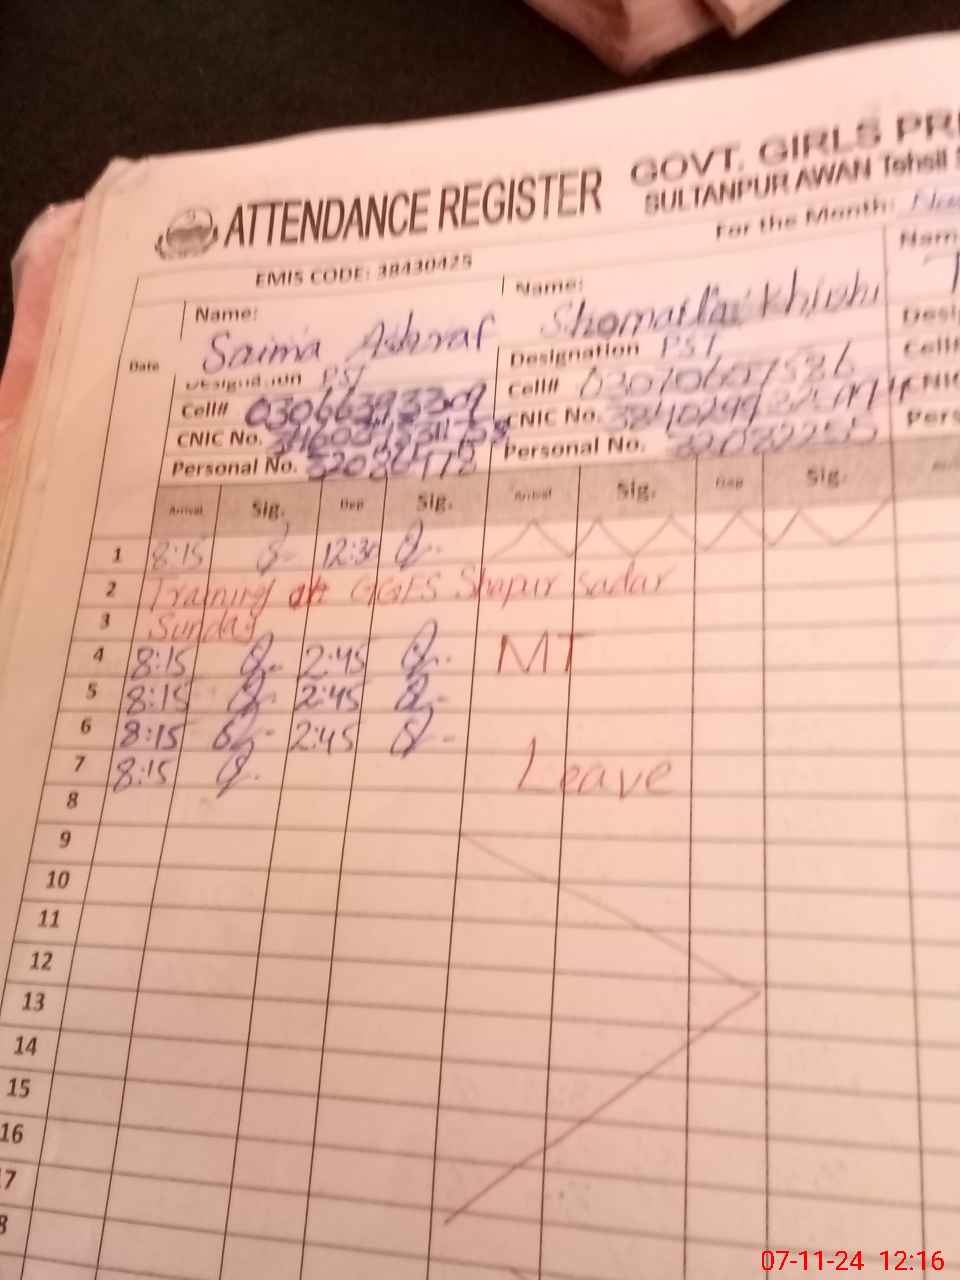 ATTENDANCE REGISTER
GOVT. GIRLS PRI
SULTANPUR AWAN Tehsil S
For the Month:
EMIS CODE: 38430425
Date
Name: Saima Ashraf
Designation PST
Cell# 03066393309
CNIC No.
Personal No.
Name: Shomaila
Designation PST
Cell# 03070607586
CNIC No.
Personal No. 32082255
Nam
Desi
Cell#
CNIC
Pers
Arrival Sig. Dep Sig. Arrival Sig. Dep Sig.
1 8:15 12:30
2 Training at GGES Shapur Sadar
3 Sunday
4 8:15 2:45 MT
5 8:15 2:45
6 8:15 2:45
7 8:15 Leave
8
9
10
11
12
13
14
15
16
7
8
07-11-24 12:16